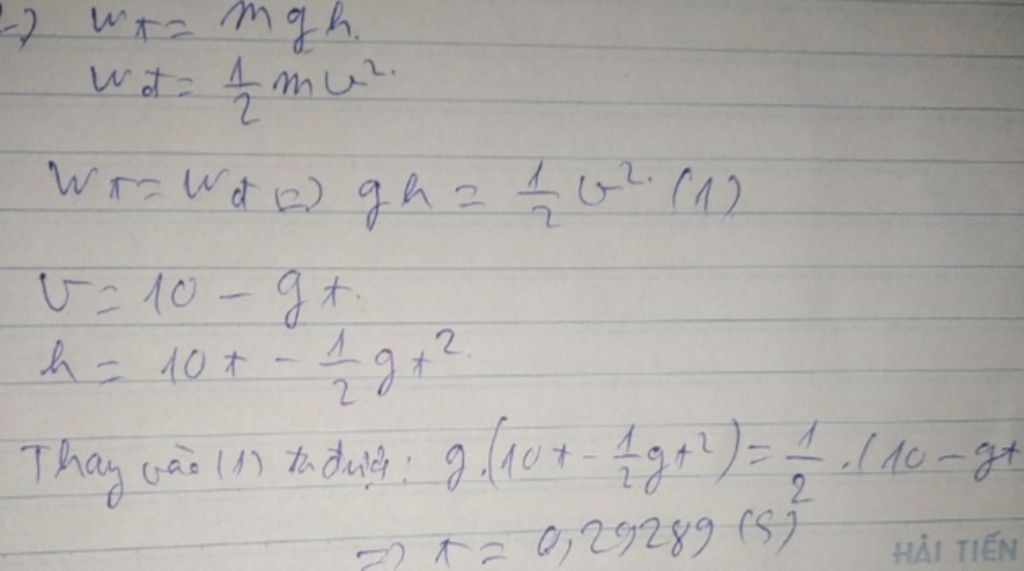 -) Wt = mgh.
Wđ = 1/2 mv².
Wt = Wđ => gh = 1/2 v². (1)
v = 10 - gt.
h = 10t - 1/2 gt²
Thay vào (1) ta được: g.(10t - 1/2 gt²) = 1/2 .(10 - gt
=> t = 0,29289 (s)
HẢI TIẾN